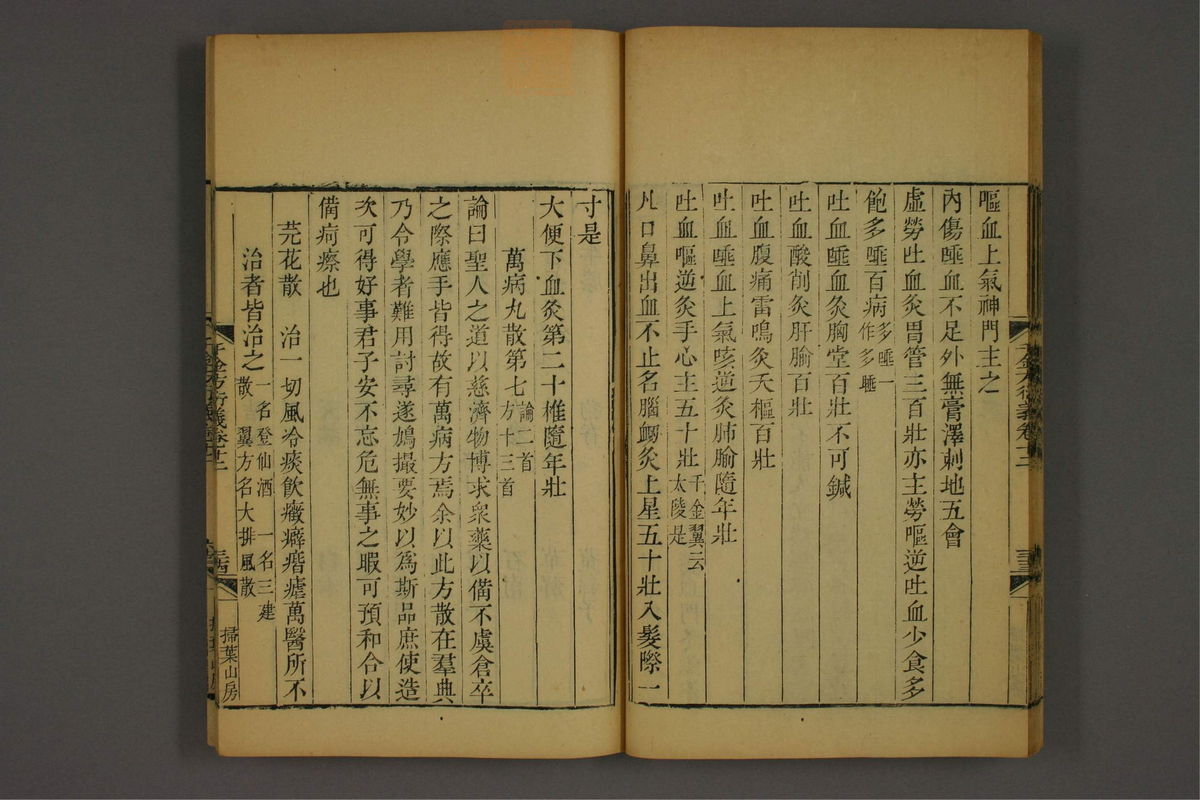 嘔血上氣神門主之
內傷唾血不足外無膏澤刺地五會
虛勞吐血灸胃管三百壯亦主勞嘔逆吐血少食多
飽多唾百病多唾一作多睡
吐血唾血灸胸堂百壯不可鍼
吐血酸削灸肝腧百壯
吐血腹痛雷鳴灸天樞百壯
吐血唾血上氣咳逆灸肺腧隨年壯
吐血嘔逆灸手心主五十壯千金翼云太陵是
凡口鼻出血不止名腦衂灸上星五十壯入髮際一
寸是
大便下血灸第二十椎隨年壯
萬病丸散第七論二首方十三首
論曰聖人之道以慈濟物博求眾藥以備不虞倉卒
之際應手皆得故有萬病方焉余以此方散在羣典
乃令學者難用討尋遂鳩撮要妙以爲斯品庶使造
次可得好事君子安不忘危無事之暇可預和合以
備疴瘵也
芫花散 治一切風冷痰飲癥癖痎瘧萬醫所不
治者皆治之一名登仙酒 一名三建散 翼方名大排風散
千金方衍義卷十二
掃葉山房